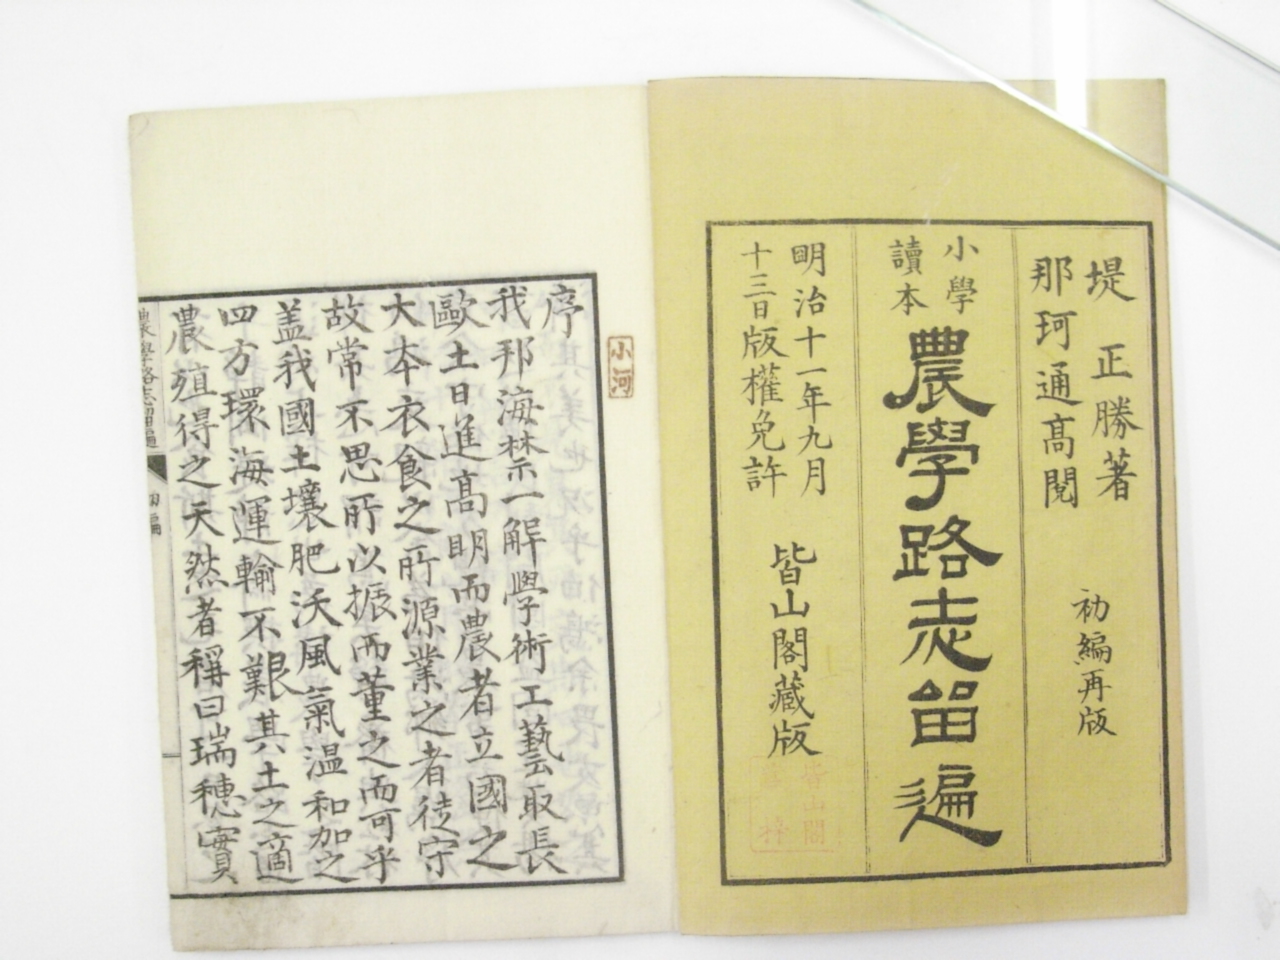 堤正勝著
那珂通髙閱
初編再版
小學
讀本
農學路志留遍
明治十一年九月
十三日版權免許
皆山閣藏版
皆山閣
小河
序
我邦海禁一解學術工藝取長
歐土日進髙明而農者立國之
大本衣食之所源業之者徒守
故常不思所以振而董之而可乎
盖我國土壤肥沃風氣温和加之
四方環海運輸不艱其土之適
農殖得之天然者稱曰瑞穗實
農學路志留遍
初編